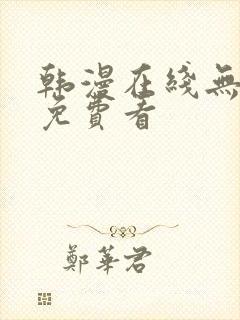 韩漫在线無
免費看
鄭華君